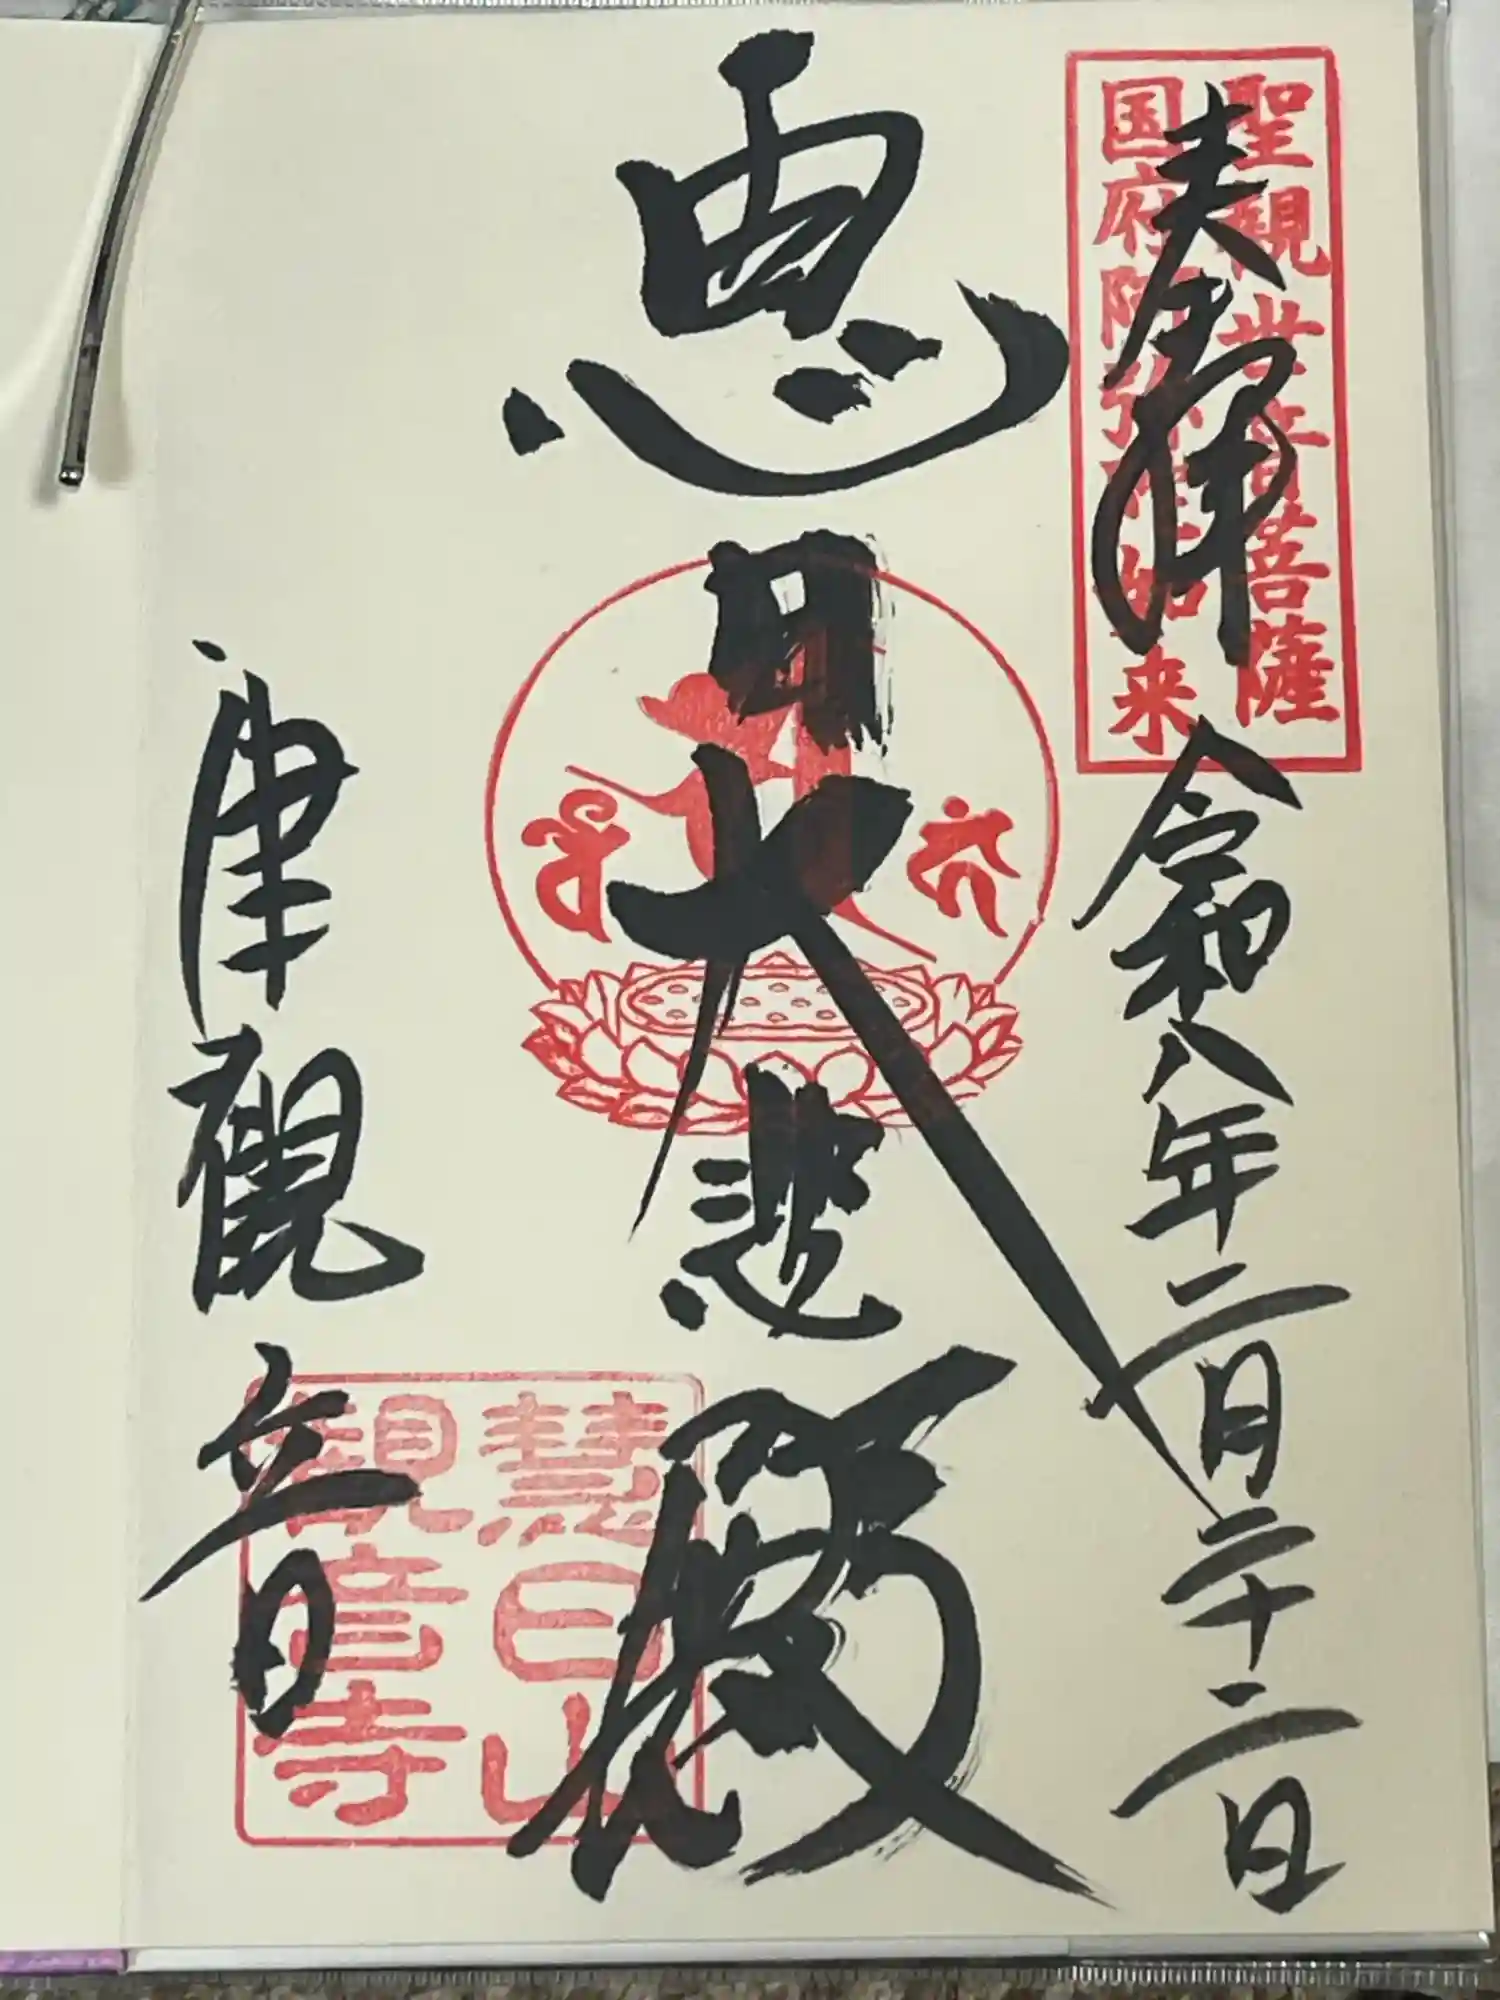 奉拝
令和八年二月二十二日
聖観世音菩薩
国府阿弥陀如来
恵日大悲殿
津観音
慧日山
観音寺